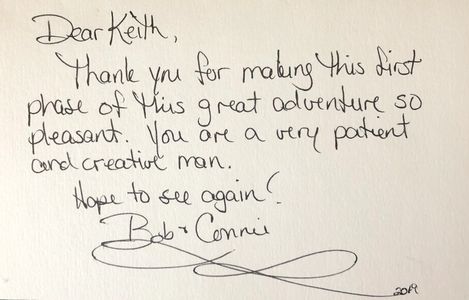 Dear Keith,
Thank you for making this first
phase of this great adventure so
pleasant. You are a very patient
and creative man.
Hope to see again!
Bob + Connie
2019